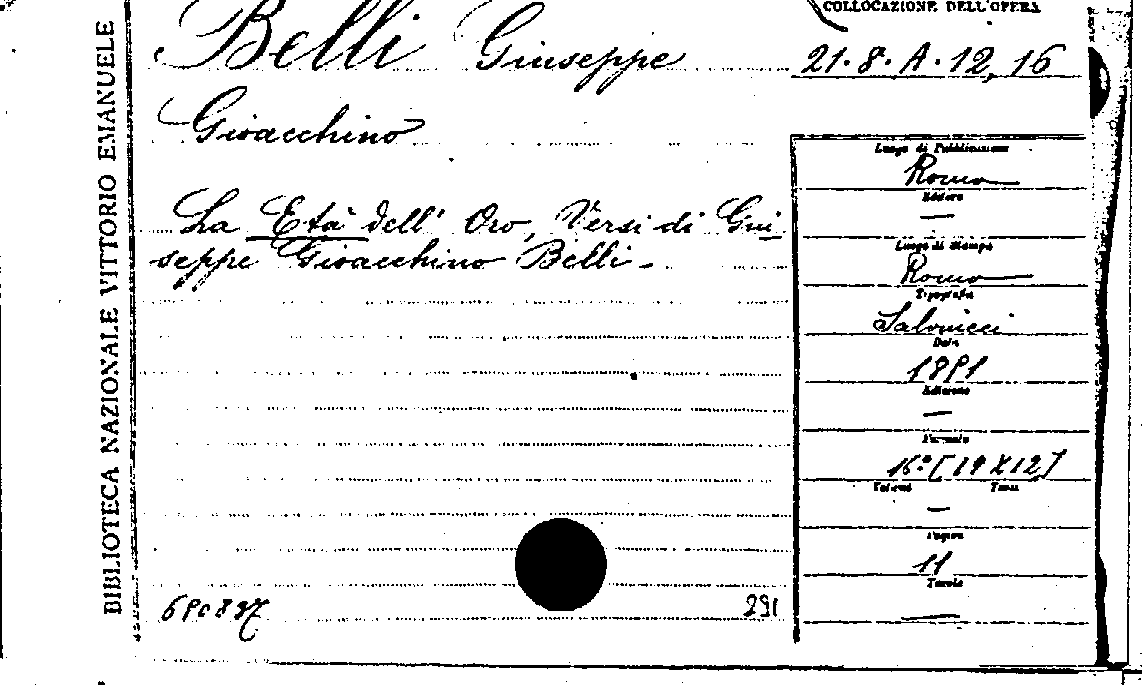 BIBLIOTECA NAZIONALE VITTORIO EMANUELE
COLLOCAZIONE DELL'OPERA
Belli Giuseppe
21.8.A.12,16
Gioacchino
La Età dell' Oro, Versi di Giu
seppe Gioacchino Belli -
Luogo di Pubblicazione
Roma
Editore
—
Luogo di Stampa
Roma
Tipografia
Salviucci
Data
1851
Edizione
—
Formato
16° [19 X 12]
Volumi Tomi
—
Pagine
11
Tavole
—
291